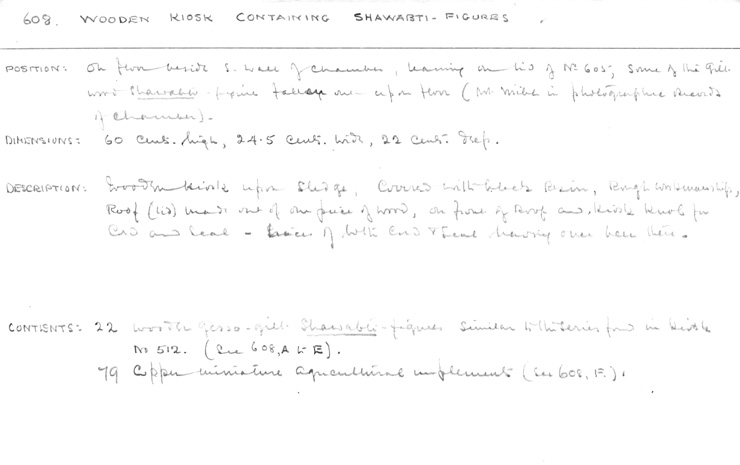 608. WOODEN KIOSK CONTAINING SHAWABTI-FIGURES.
POSITION: On floor beside S. wall of chamber, leaning on lid of No 605; some of the gilt
wood Shawabti-figures fallen out upon floor (not visible in photographic records
of chamber).
DIMENSIONS: 60 cents. high, 24.5 cents. wide, 22 cents. deep.
DESCRIPTION: Wooden kiosk upon sledge, covered with black resin, rough workmanship,
Roof (lid) made out of one piece of wood, on front of roof and kiosk knob for
cord and seal - traces of both cord & seal having once been there.
CONTENTS: 22 wooden gesso-gilt Shawabti-figures similar to the series found in kiosk
No 512. (See 608, A to E).
79 Copper miniature agricultural implements (See 608, F.).